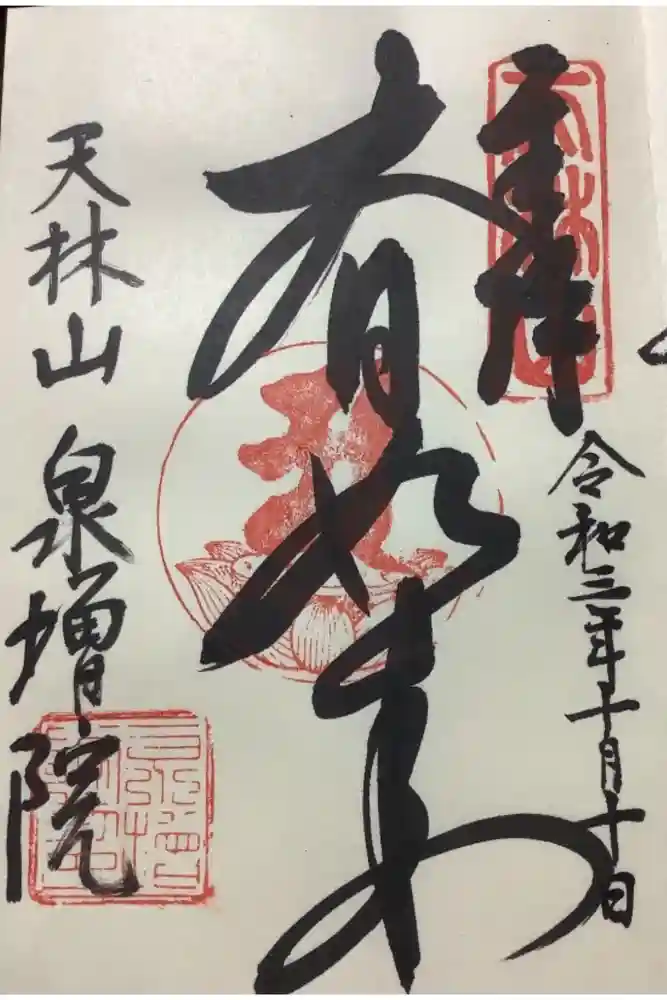 奉拝
令和三年十月十日
大日如来
天林山 泉増院